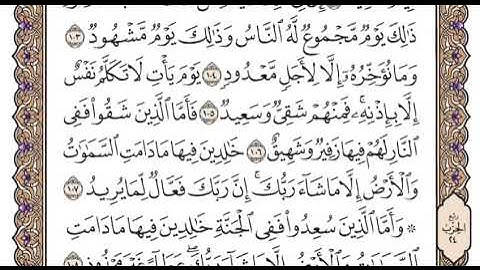 ذَٰلِكَ يَوْمٌ مَّجْمُوعٌ لَّهُ ٱلنَّاسُ وَذَٰلِكَ يَوْمٌ مَّشْهُودٌ ١٠٣
وَمَا نُؤَخِّرُهُۥٓ إِلَّا لِأَجَلٍ مَّعْدُودٍ ١٠٤ يَوْمَ يَأْتِ لَا تَكَلَّمُ نَفْسٌ
إِلَّا بِإِذْنِهِۦ ۚ فَمِنْهُمْ شَقِىٌّ وَسَعِيدٌ ١٠٥ فَأَمَّا ٱلَّذِينَ شَقُوا۟ فَفِى
ٱلنَّارِ لَهُمْ فِيهَا زَفِيرٌ وَشَهِيقٌ ١٠٦ خَٰلِدِينَ فِيهَا مَا دَامَتِ ٱلسَّمَٰوَٰتُ
وَٱلْأَرْضُ إِلَّا مَا شَآءَ رَبُّكَ ۚ إِنَّ رَبَّكَ فَعَّالٌ لِّمَا يُرِيدُ ١٠٧
۞ وَأَمَّا ٱلَّذِينَ سُعِدُوا۟ فَفِى ٱلْجَنَّةِ خَٰلِدِينَ فِيهَا مَا دَامَتِ
ٱلسَّمَٰوَٰتُ وَٱلْأَرْضُ إِلَّا مَا شَآءَ رَبُّكَ ۖ عَطَآءً غَيْرَ مَجْذُوذٍ ١٠٨
ربع
الحزب
٢٤